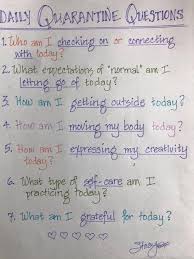 DAILY QUARANTINE QUESTIONS
1. Who am I checking on or connecting
with today?
2. What expectations of "normal" am I
letting go of today?
3. How am I getting outside today?
4. How am I moving my body today?
5. How am I expressing my creativity
today?
6. What type of self-care am I
practicing today?
7. What am I grateful for today?